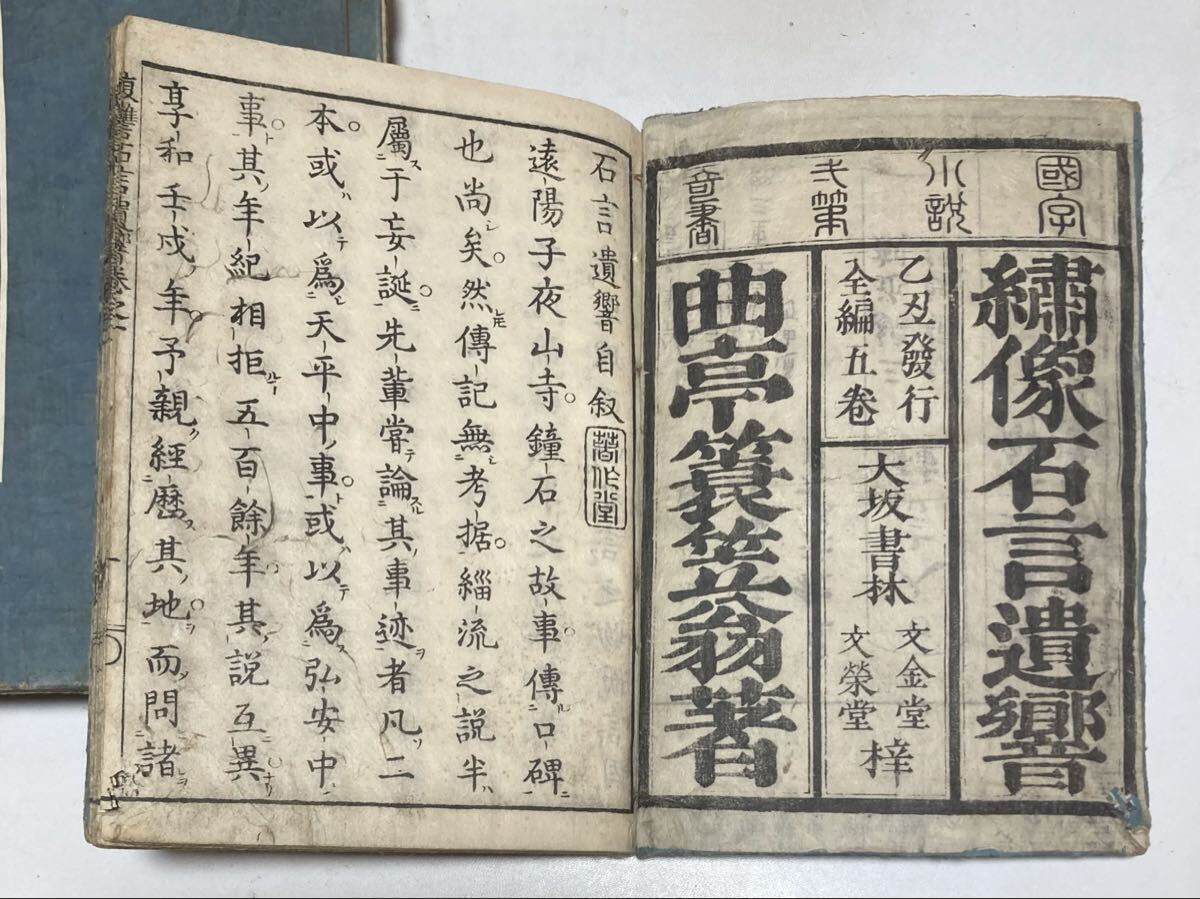 國字
小説
才第
奇書
繡像石言遺響
乙丑發行
全編五卷
大坂書林
文金堂
文榮堂
梓
曲亭簑笠翁著
石言遺響自叙
著作堂
遠陽子夜山寺鐘石之故事傳口碑
也尚矣然傳記無考据緇流之説半
屬于妄誕先輩嘗論其事迹者凡二
本或以爲天平中事或以爲弘安中
事其年紀相拒五百餘年其説互異
享和壬戌年予親經歷其地而問諸
復讐石言遺響卷之一